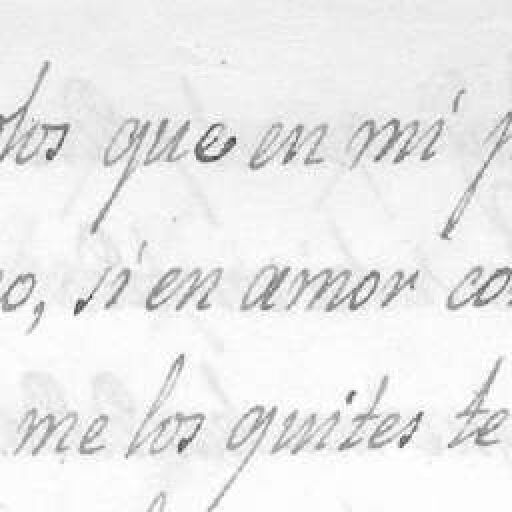 los que en mi
si en amor
me los quites te